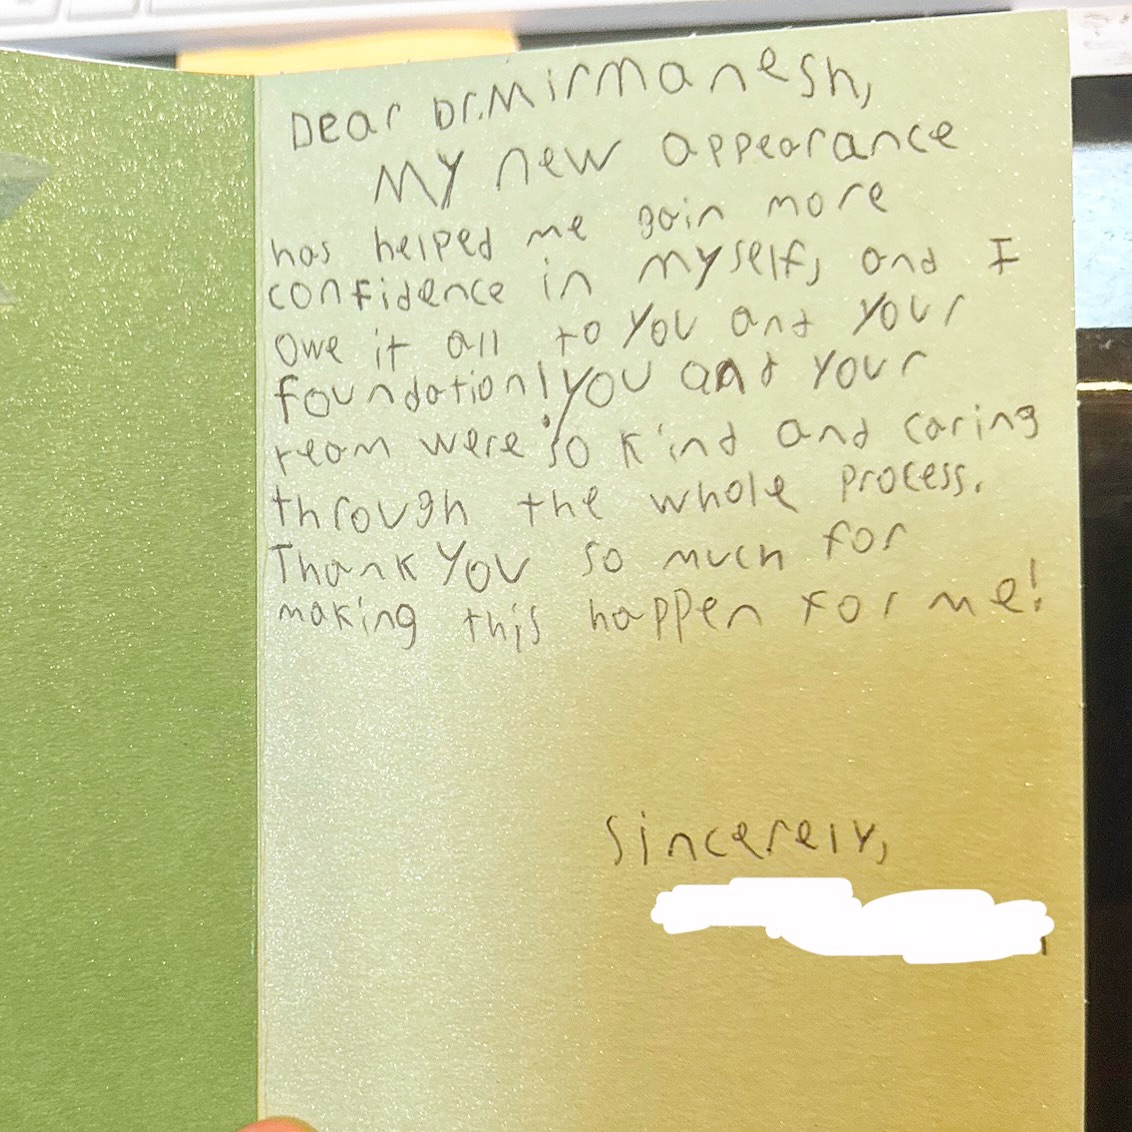 Dear Dr. Mirmanesh,
My new appearance
has helped me gain more
confidence in myself, and I
owe it all to you and your
foundation! you and your
team were so kind and caring
through the whole process.
Thank you so much for
making this happen for me!
Sincerely,